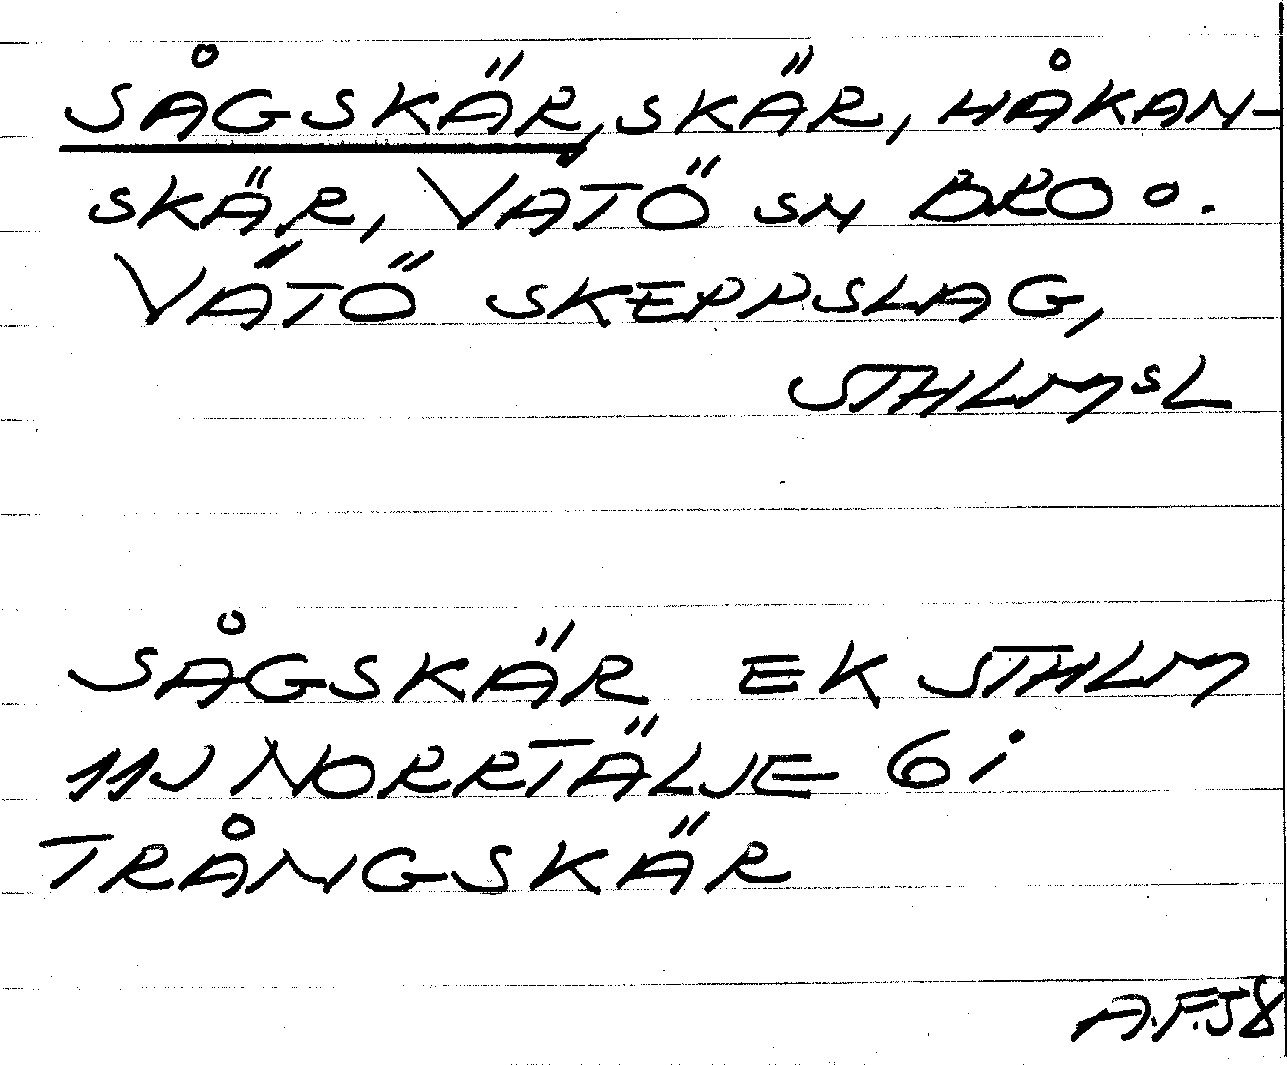 SÅGSKÄR, SKÄR, HÅKAN-
SKÄR, VÄTÖ SN BRO O.
VÄTÖ SKEPPSLAG,
STHLMSL
SÅGSKÄR EK STHLM
11J NORRTÄLJE 6i
TRÅNGSKÄR
A.F.58